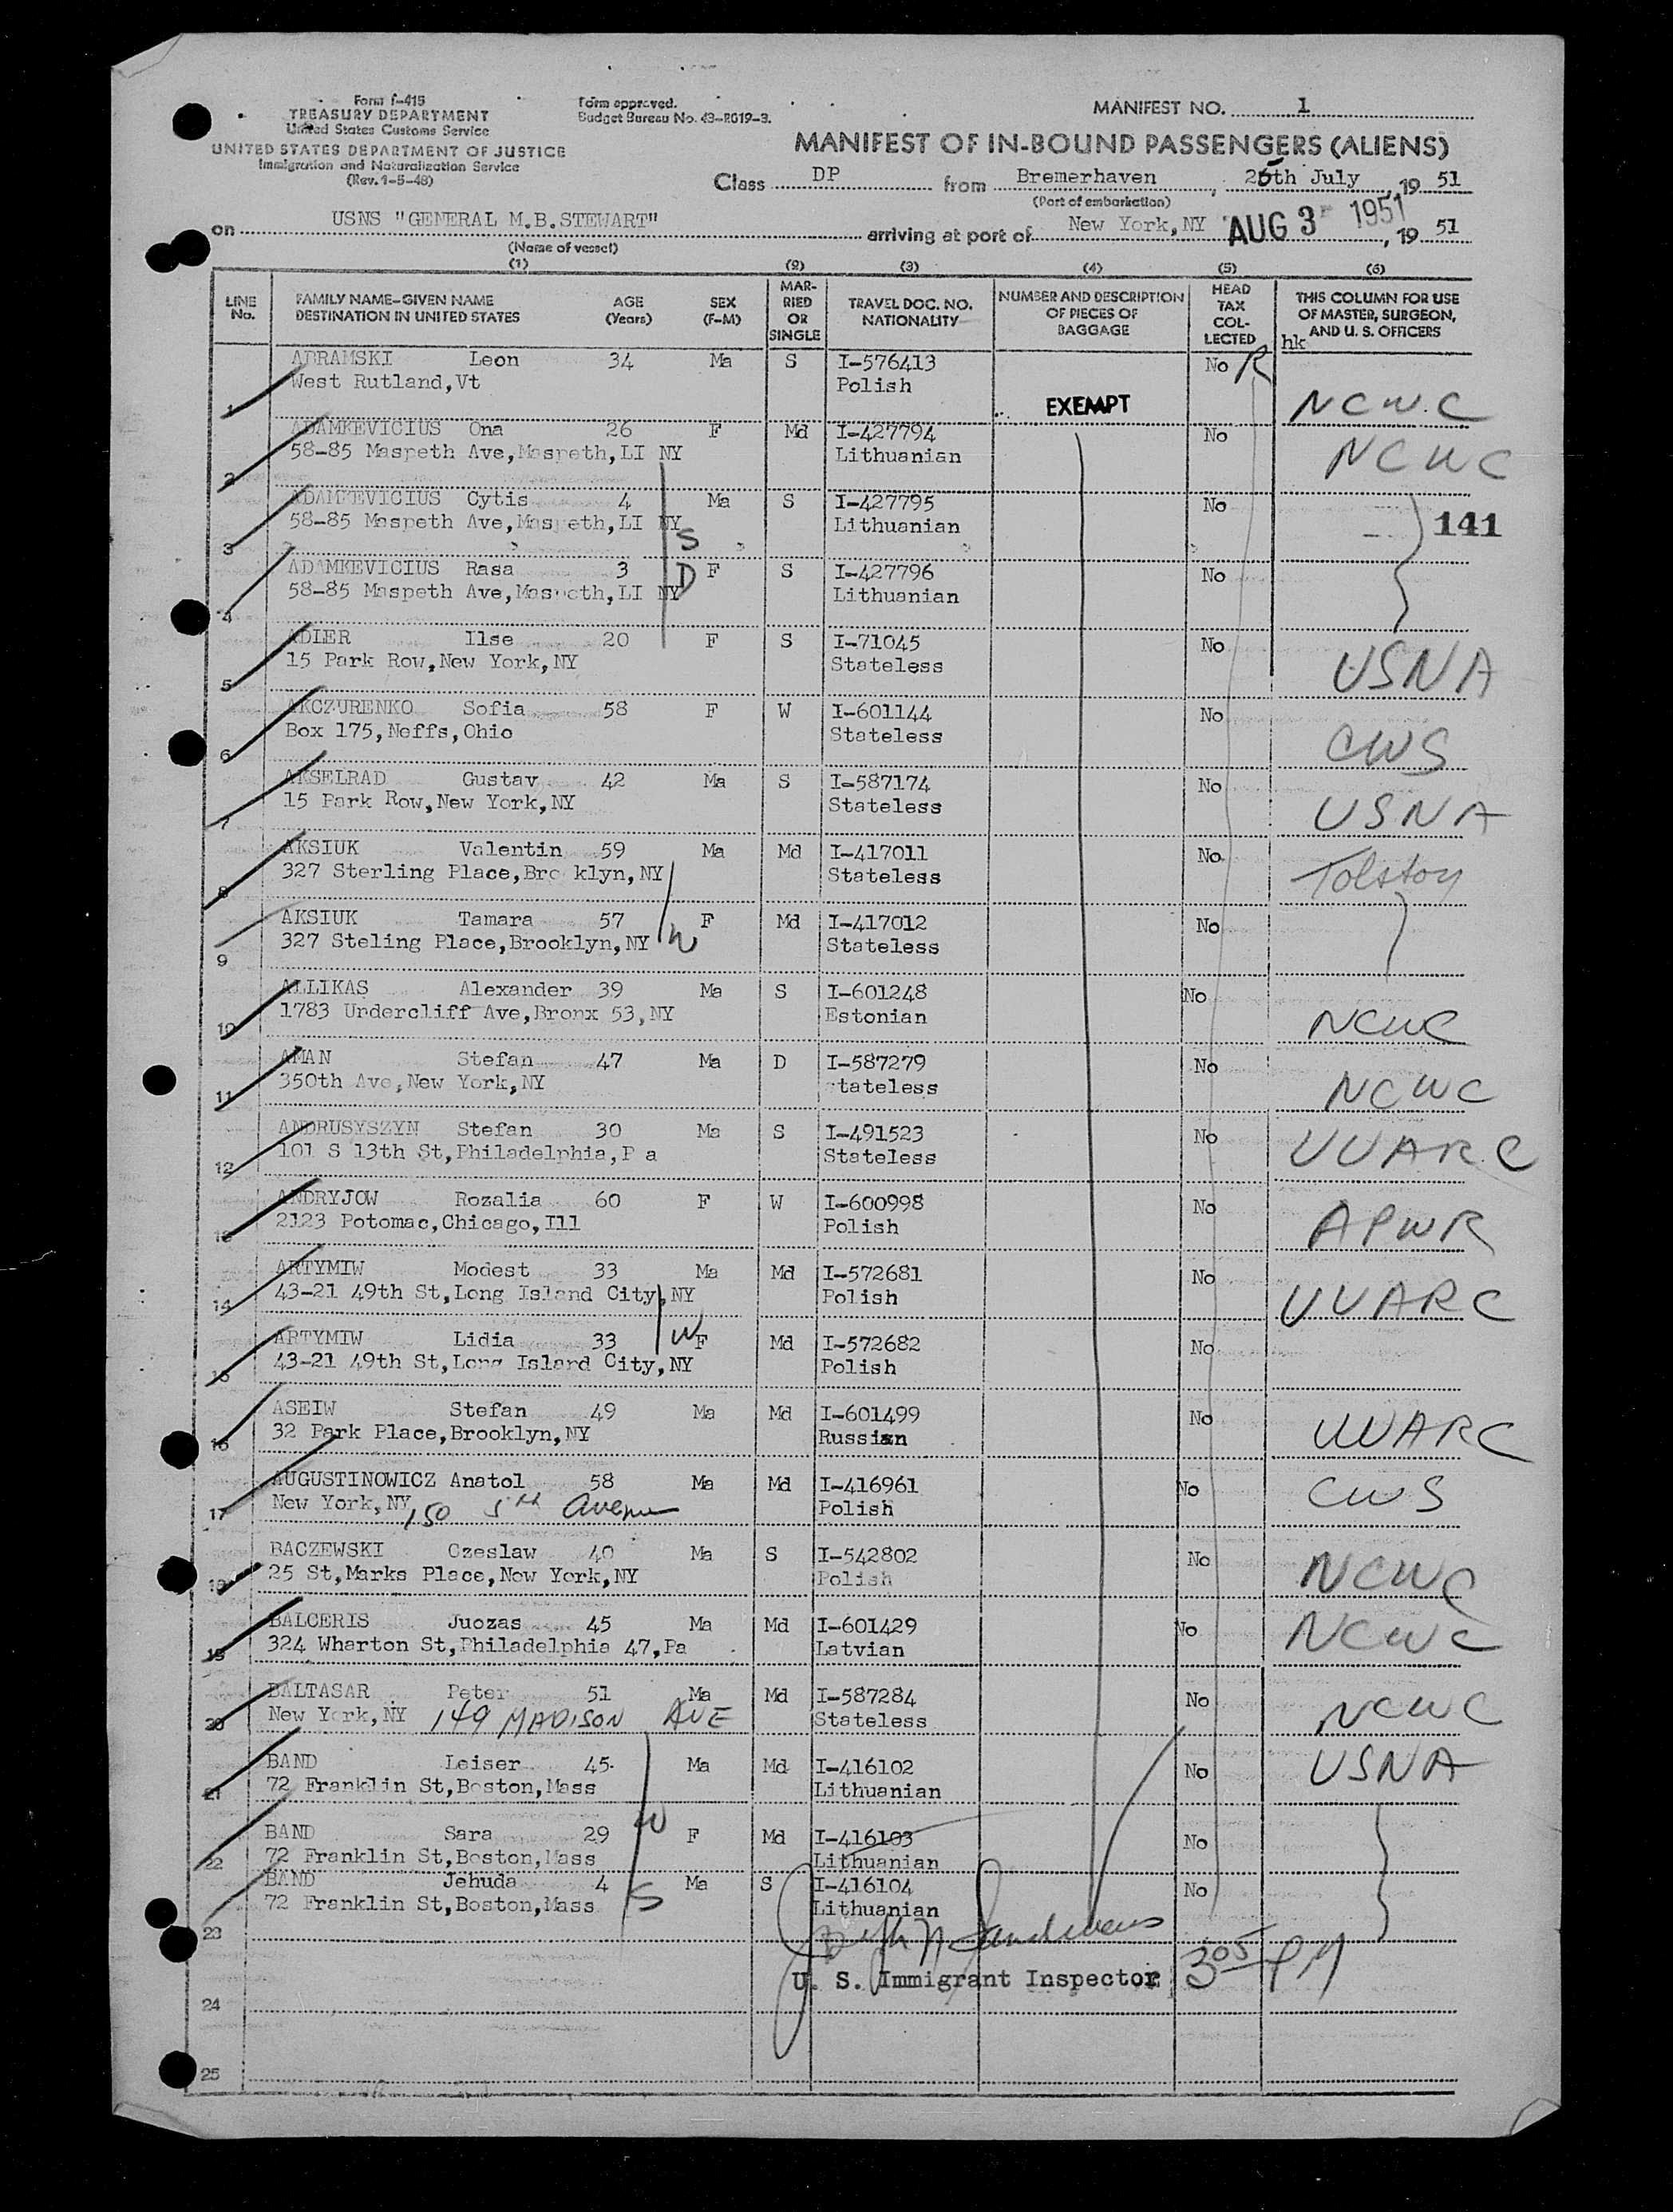 Form I-415
TREASURY DEPARTMENT
United States Customs Service
UNITED STATES DEPARTMENT OF JUSTICE
Immigration and Naturalization Service
(Rev. 1-5-48)
Form approved.
Budget Bureau No. 43-R019-3.
MANIFEST NO. 1
MANIFEST OF IN-BOUND PASSENGERS (ALIENS)
Class DP from Bremerhaven, 25th July, 19 51
(Port of embarkation)
on USNS "GENERAL M.B.STEWART" arriving at port of New York,NY AUG 3 1951, 19 51
(Name of vessel)
(1) (2) (3) (4) (5) (6)
LINE No. FAMILY NAME-GIVEN NAME DESTINATION IN UNITED STATES AGE (Years) SEX (F-M) MARRIED OR SINGLE TRAVEL DOC. NO. NATIONALITY NUMBER AND DESCRIPTION OF PIECES OF BAGGAGE HEAD TAX COLLECTED THIS COLUMN FOR USE OF MASTER, SURGEON, AND U. S. OFFICERS
hk
ABRAMSKI Leon 34 Ma S I-576413 No R
West Rutland,Vt Polish
1 EXEMPT NCWC
ADAMKEVICIUS Ona 26 F Md I-427794 No
58-85 Maspeth Ave,Maspeth,LI NY Lithuanian NCWC
2
ADAMKEVICIUS Cytis 4 Ma S I-427795 No
58-85 Maspeth Ave,Maspeth,LI NY Lithuanian 141
3 S
ADAMKEVICIUS Rasa 3 D F S I-427796 No
58-85 Maspeth Ave,Maspeth,LI NY Lithuanian
4
ADIER Ilse 20 F S I-71045 No
15 Park Row,New York,NY Stateless USNA
5
AKCZURENKO Sofia 58 F W I-601144 No
Box 175,Neffs,Ohio Stateless CWS
6
AKSELRAD Gustav 42 Ma S I-587174 No
15 Park Row,New York,NY Stateless USNA
7
AKSIUK Valentin 59 Ma Md I-417011 No
327 Sterling Place,Bro klyn,NY Stateless Tolstoy
8
AKSIUK Tamara 57 F Md I-417012 No
327 Steling Place,Brooklyn,NY W Stateless
9
ALLIKAS Alexander 39 Ma S I-601248 No
1783 Undercliff Ave,Bronx 53,NY Estonian NCWC
10
AMAN Stefan 47 Ma D I-587279 No
350th Ave,New York,NY tateless NCWC
11
ANDRUSYSZYN Stefan 30 Ma S I-491523 No
101 S 13th St,Philadelphia,P a Stateless UUARC
12
ANDRYJOW Rozalia 60 F W I-600998 No
2123 Potomac,Chicago,Ill Polish APWR
13
ARTYMIW Modest 33 Ma Md I-572681 No
43-21 49th St,Long Island City,NY Polish UUARC
14
ARTYMIW Lidia 33 W F Md I-572682 No
43-21 49th St,Long Island City,NY Polish
15
ASEIW Stefan 49 Ma Md I-601499 No
32 Park Place,Brooklyn,NY Russian UUARC
16
AUGUSTINOWICZ Anatol 58 Ma Md I-416961 No
New York,NY 150 5th Avenue Polish CWS
17
BACZEWSKI Czeslaw 40 Ma S I-542802 No
25 St,Marks Place,New York,NY Polish NCWC
18
BALCERIS Juozas 45 Ma Md I-601429 No
324 Wharton St,Philadelphia 47,Pa Latvian NCWC
19
BALTASAR Peter 51 Ma Md I-587284 No
New York,NY 149 MADISON AVE Stateless NCWC
20
BAND Leiser 45 Ma Md I-416102 No
72 Franklin St,Boston,Mass Lithuanian USNA
21
BAND Sara 29 W F Md I-416103 No
72 Franklin St,Boston,Mass Lithuanian
22
BAND Jehuda 4 Ma S I-416104 No
72 Franklin St,Boston,Mass S Lithuanian
23
U. S. Immigrant Inspector 3 05 PM
24
25